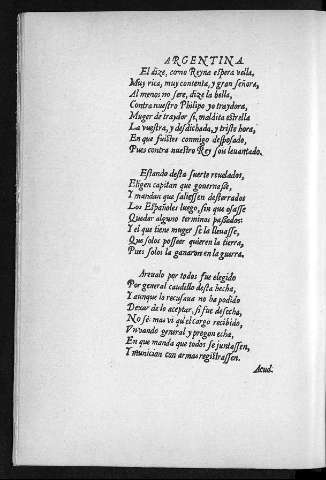 ARGENTINA
El dize, como Reyna espera vella,
Muy rica, muy contenta, y gran señora,
Al menos no sere, dize la bella,
Contra nuestro Philipo yo traydora,
Muger de traydor si, maldita estrella
La vuestra, y desdichada, y triste hora,
En que fuistes conmigo desposado,
Pues contra nuestro Rey sois leuantado.
Estando desta suerte reuelados,
Eligen capitan que gouernasse,
Y mandan que saliessen desterrados
Los Españoles luego, sin que osasse
Quedar alguno terminos passados:
Y el que tiene muger se la lleuasse,
Que solos posseer quieren la tierra,
Pues solos la ganaron en la guerra.
Areualo por todos fue elegido
Por general caudillo desta hecha,
Y aunque lo recusaua no ha podido
Dexar de lo aceptar, si fue desecha,
No sè: mas vi qu'el cargo recibido,
Vn vando general y pregon echa,
En que manda que todos se juntassen,
Y municion con armas registrassen.
Acud.